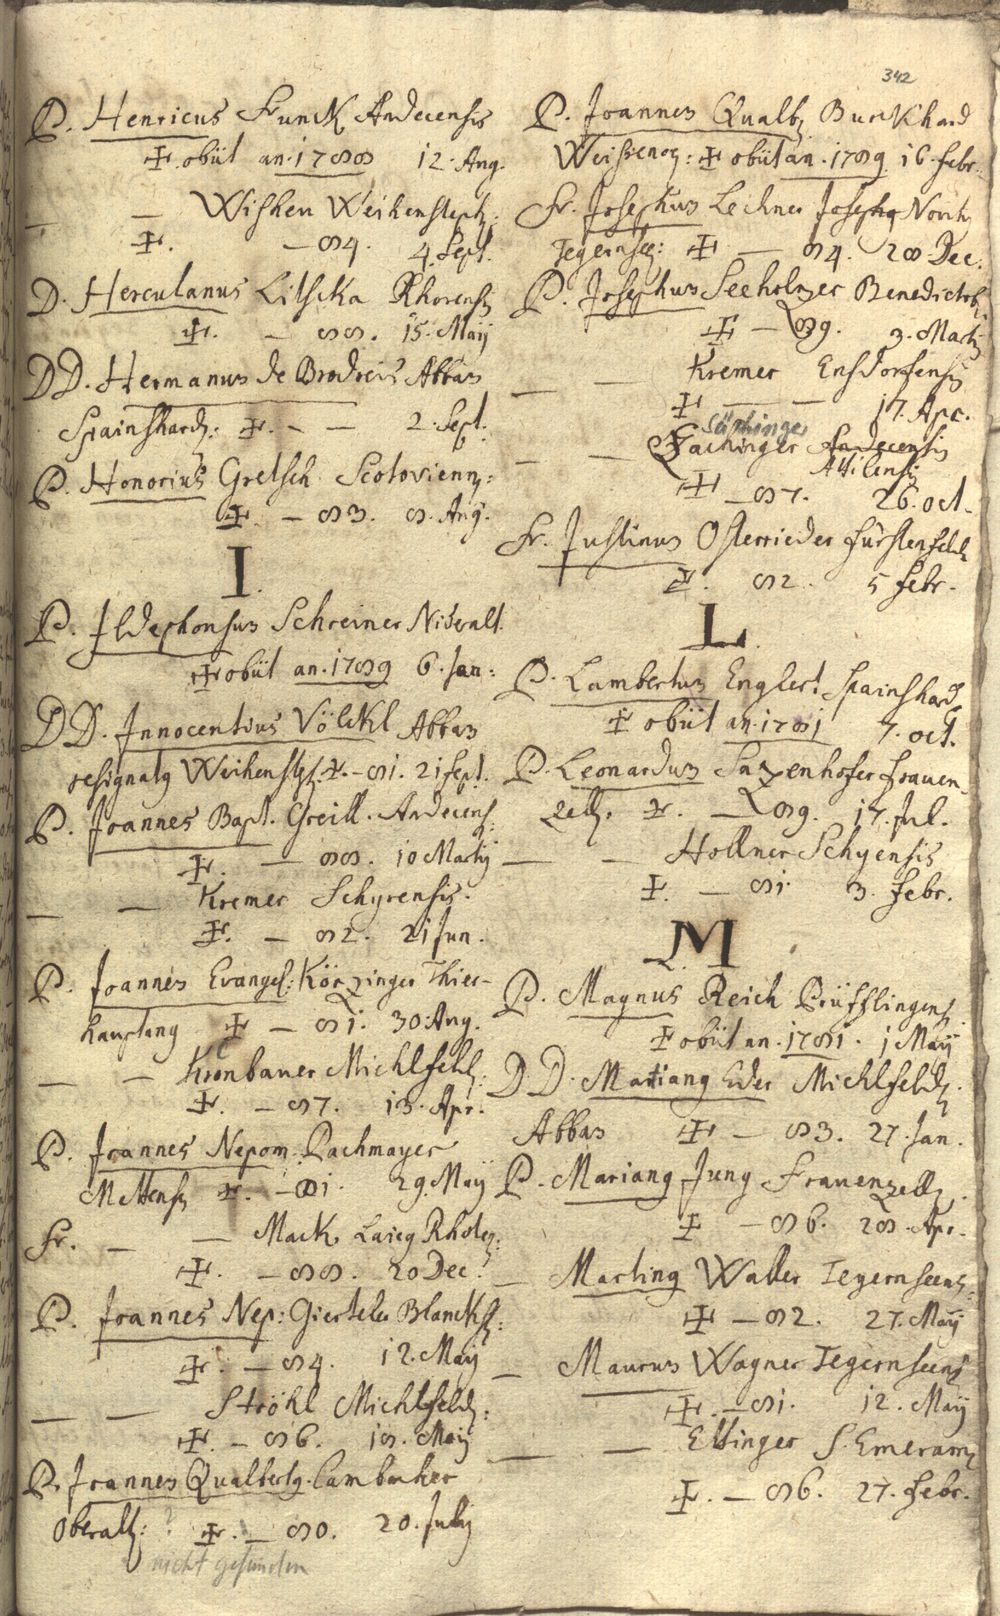 342
P. Henricus Funck Andecensis
✠ obiit an. 1788 12. Aug.
— — Wishen Weihensteph:
✠. — 84. 4. Sept.
D. Herculanus Litscka Rhorens.
✠. — 88. 15. Maÿ
DD. Hermanus de Brodreis Abbas
Spainshard: ✠. — — 2. Sept:
P. Honorius Gretsch Scotovienn:
✠ — 83. 8. Aug.
I.
P. Ildephonsus Schreiner Nideralt.
✠ obiit an. 1789 6. Jan:
DD. Innocentius Völckl Abbas
resignatq Weihenst. ✠. — 81. 21 Sept.
P. Joannes Bapt. Greill. Andecens:
✠. — 88. 10 Martÿ
— — Kremer Schyrensis.
✠. — 82. 21 Jun.
P. Joannes Evangel: Körzinger Thier-
hauptang ✠ — 81. 30. Aug.
— — Kronbauer Michlfeld:
✠. — 87. 13. Apr.
P. Joannes Nepom. Pachmayer
Mettens. ✠. — 81. 29. May
Fr. — — Mack Laicq Rhoren:
✠. — 88. 20 Dec.
P. Joannes Nep: Gierteler Blanckst:
✠. — 84. 12. Maÿ
— — Ströhl Michlfeld:
✠. — 86. 18. Maÿ
P. Joannes Qualbertq Cambacher
Oberalt: ? ✠. — 80. 20. Julÿ
nicht gefunden
P. Joannes Qualb. Burckhard
Weissenoe: ✠ obiit an. 1789 16. Febr.
Fr. Josephus Lechner Josephq Novit.
Tegernsee: ✠ — 84. 28 Dec.
P. Josephus Seeholzer Benedictob.
✠ — 89. 3. Mart.
— — Kremer Ensdorfensis
✠ — — 17. Apr.
Süchinger
— — Fachinger Andecensis
Attilensis
✠ — 87. 26. oct.
Fr. Justinus Osterrieder Fürstenfeld.
✠. 82. 5 Febr.
L.
P. Lambertus Englert Spainshard.
✠ obiit an. 1781 7. oct.
P. Leonardus Sazenhofer Frauen-
zell. ✠. — 89. 17. Jul.
— — Hollner Schyensis
✠. — 81. 3. Febr.
M
P. Magnus Reich Prüfflingens.
✠ obiit an. 1781. 1 Maÿ
DD. Martianq Eder Michlfeld.
Abbas ✠ — 83. 27. Jan.
P. Marianq Jung Frauenzell.
✠ — 86. 28. Apr.
— Martinq Waller Tegernseens:
✠ — 82. 27. Maÿ
— Maurus Wagner Tegernseens
✠. — 81. 12. Maÿ
— — Ettinger S. Emeram.
✠. — 86. 27. Febr.